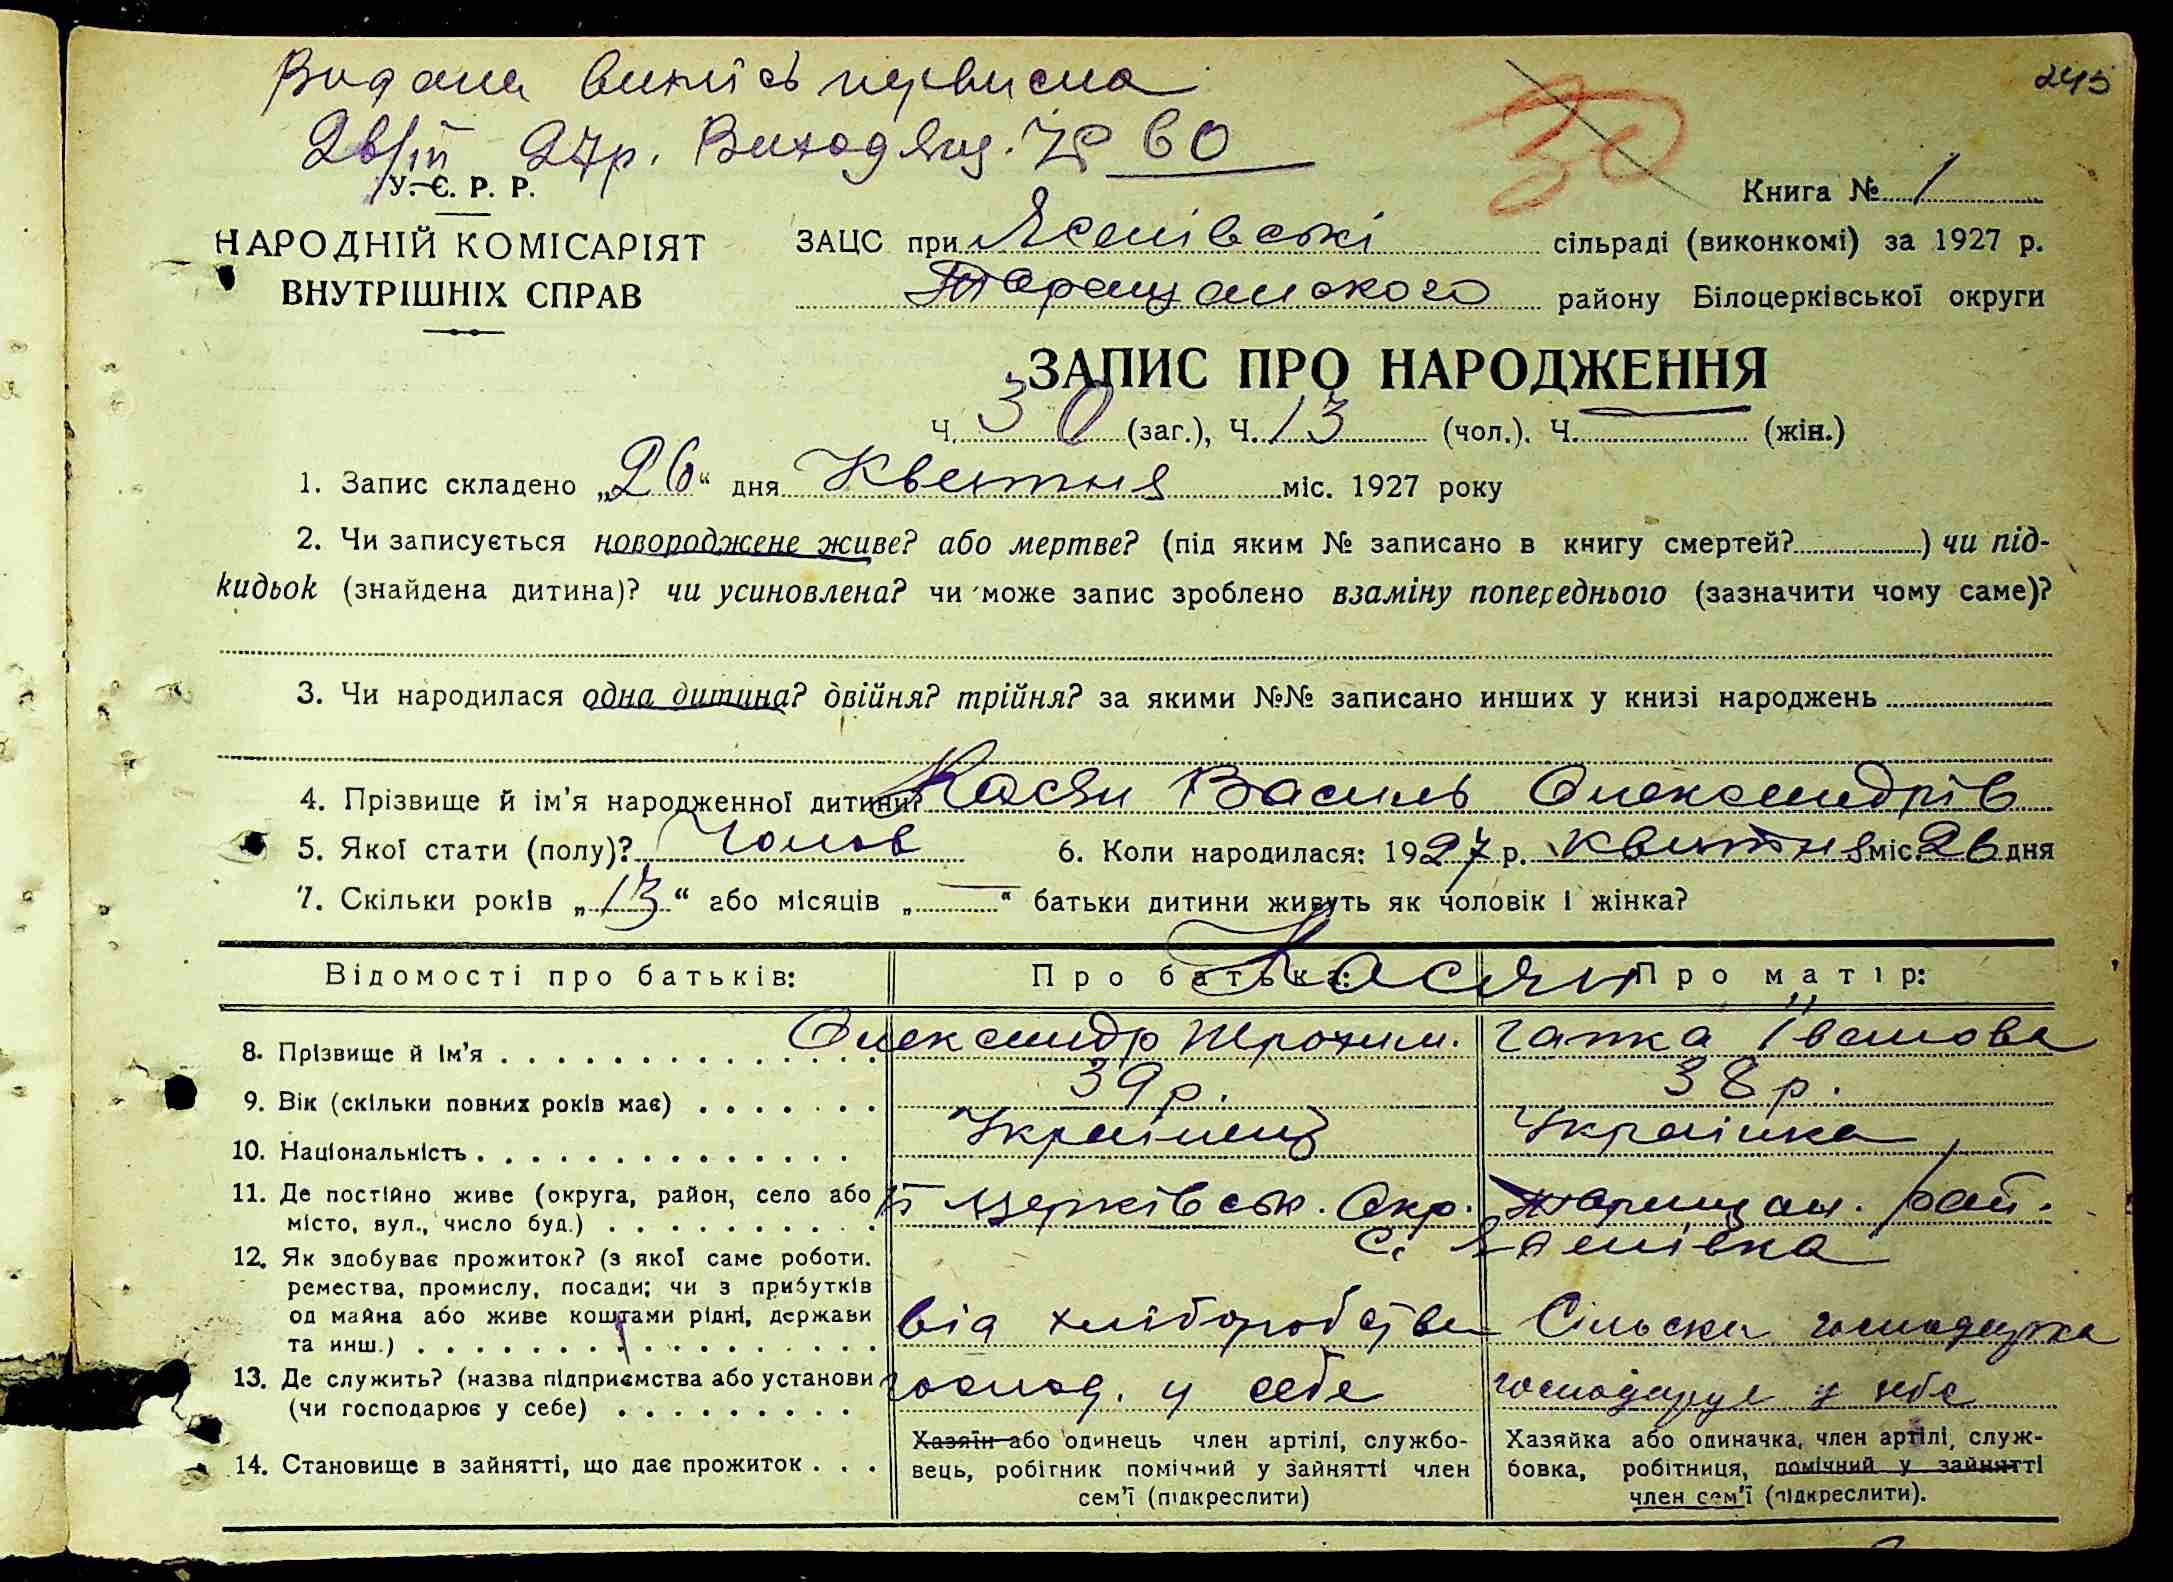 Видана випись первисна
26/IV 27р. Виходящ. № 60
245
30
У. С. Р. Р.
НАРОДНІЙ КОМІСАРІЯТ
ВНУТРІШНІХ СПРАВ
Книга № 1
ЗАЦС при Ясенівські сільраді (виконкомі) за 1927 р.
Таращанского району Білоцерківської округи
ЗАПИС ПРО НАРОДЖЕННЯ
Ч. 30 (заг.), Ч. 13 (чол.). Ч. — (жін.)
1. Запис складено „26“ дня Квитня міс. 1927 року
2. Чи записується новороджене живе? або мертве? (під яким № записано в книгу смертей? ) чи під-
кидьок (знайдена дитина)? чи усиновлена? чи може запис зроблено взаміну попереднього (зазначити чому саме)?
3. Чи народилася одна дитина? двійня? трійня? за якими №№ записано инших у книзі народжень
4. Прізвище й ім'я народженної дитини? Касян Василь Олександрів
5. Якої стати (полу)? Чолов 6. Коли народилася: 1927 р. квитня міс. 26 дня
7. Скільки років „13“ або місяців „—“ батьки дитини живуть як чоловік і жінка?
Відомості про батьків: Про батька: Про матір:
Касян "
8. Прізвище й ім'я Олександр Трохим. Гапка Іванова
9. Вік (скільки повних років має) 39 р. 38 р.
10. Національність Українец Українка
11. Де постійно живе (округа, район, село або Б Церківськ. Окр. Таращан. рай.
місто, вул., число буд.) с. Ясенівка
12. Як здобуває прожиток? (з якої саме роботи.
ремества, промислу, посади; чи з прибутків
од майна або живе коштами рідні, держави від хліборобства Сільска господарка
та инш.)
13. Де служить? (назва підприємства або установи господ. у себе господарує у себе
(чи господарює у себе)
14. Становище в зайнятті, що дає прожиток
Хазяїн або одинець член артілі, службо-
вець, робітник помічний у зайнятті член
сем'ї (підкреслити)
Хазяйка або одиначка, член артілі, служ-
бовка, робітниця, помічний у зайнятті
член сем'ї (підкреслити).